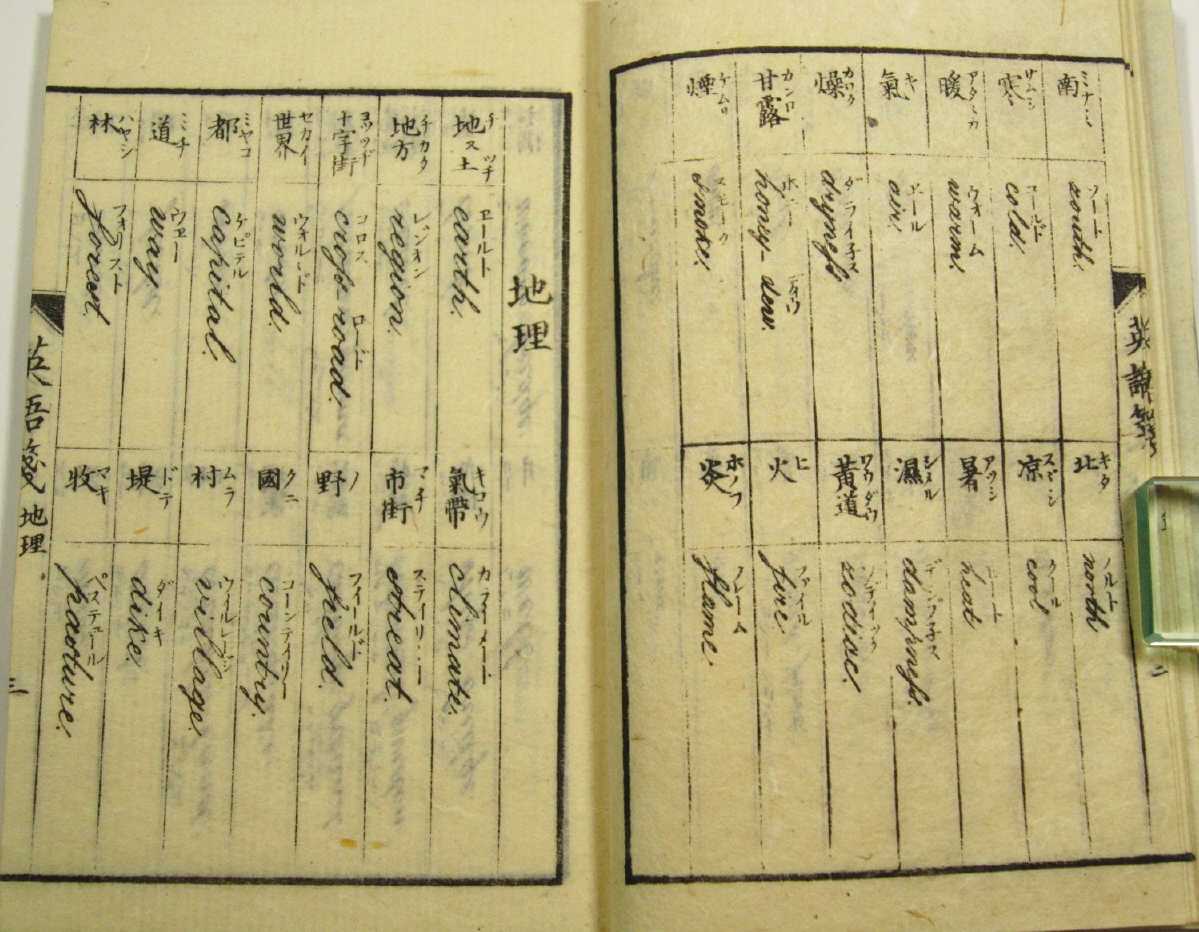 南 ミナミ
south. ソート
寒 サムシ
cold. コールド
暖 アタヽカ
warm. ウォーム
氣 キ
air. エール
燥 カロク
dryneſs ダライ子ス
甘露 カンロ
honey-dew.
煙 ケムリ
smoke. スモーク
北 キタ
north ノルト
凉 スヾシ
cool クール
暑 アツシ
heat ヒート
濕 シメル
dampneſs.
黄道 ワウダウ
zodiac.
火 ヒ
fire. ファイル
炎 ホノフ
flame. フレーム
英語箋
二
地理
地 又 土 チ ツチ
earth. エールト
地方 チカタ
region. レジオン
十字街 ヨツツド
croſs-road. コロス ロード
世界 セカイ
world. ウォルルド
都 ミヤコ
capital. ケピテル
道 ミチ
way. ウエー
林 ハヤシ
forest. フォリスト
氣帶 キコウ
climate.
市街 マチ
streat. ステイリート
野 ノ
field. フィールド
國 クニ
country. コーンテイリー
村 ムラ
village. ウイルレージ
堤 ドテ
dike. ダイキ
牧 マキ
pasture. ペステュール
英語箋 地理
三